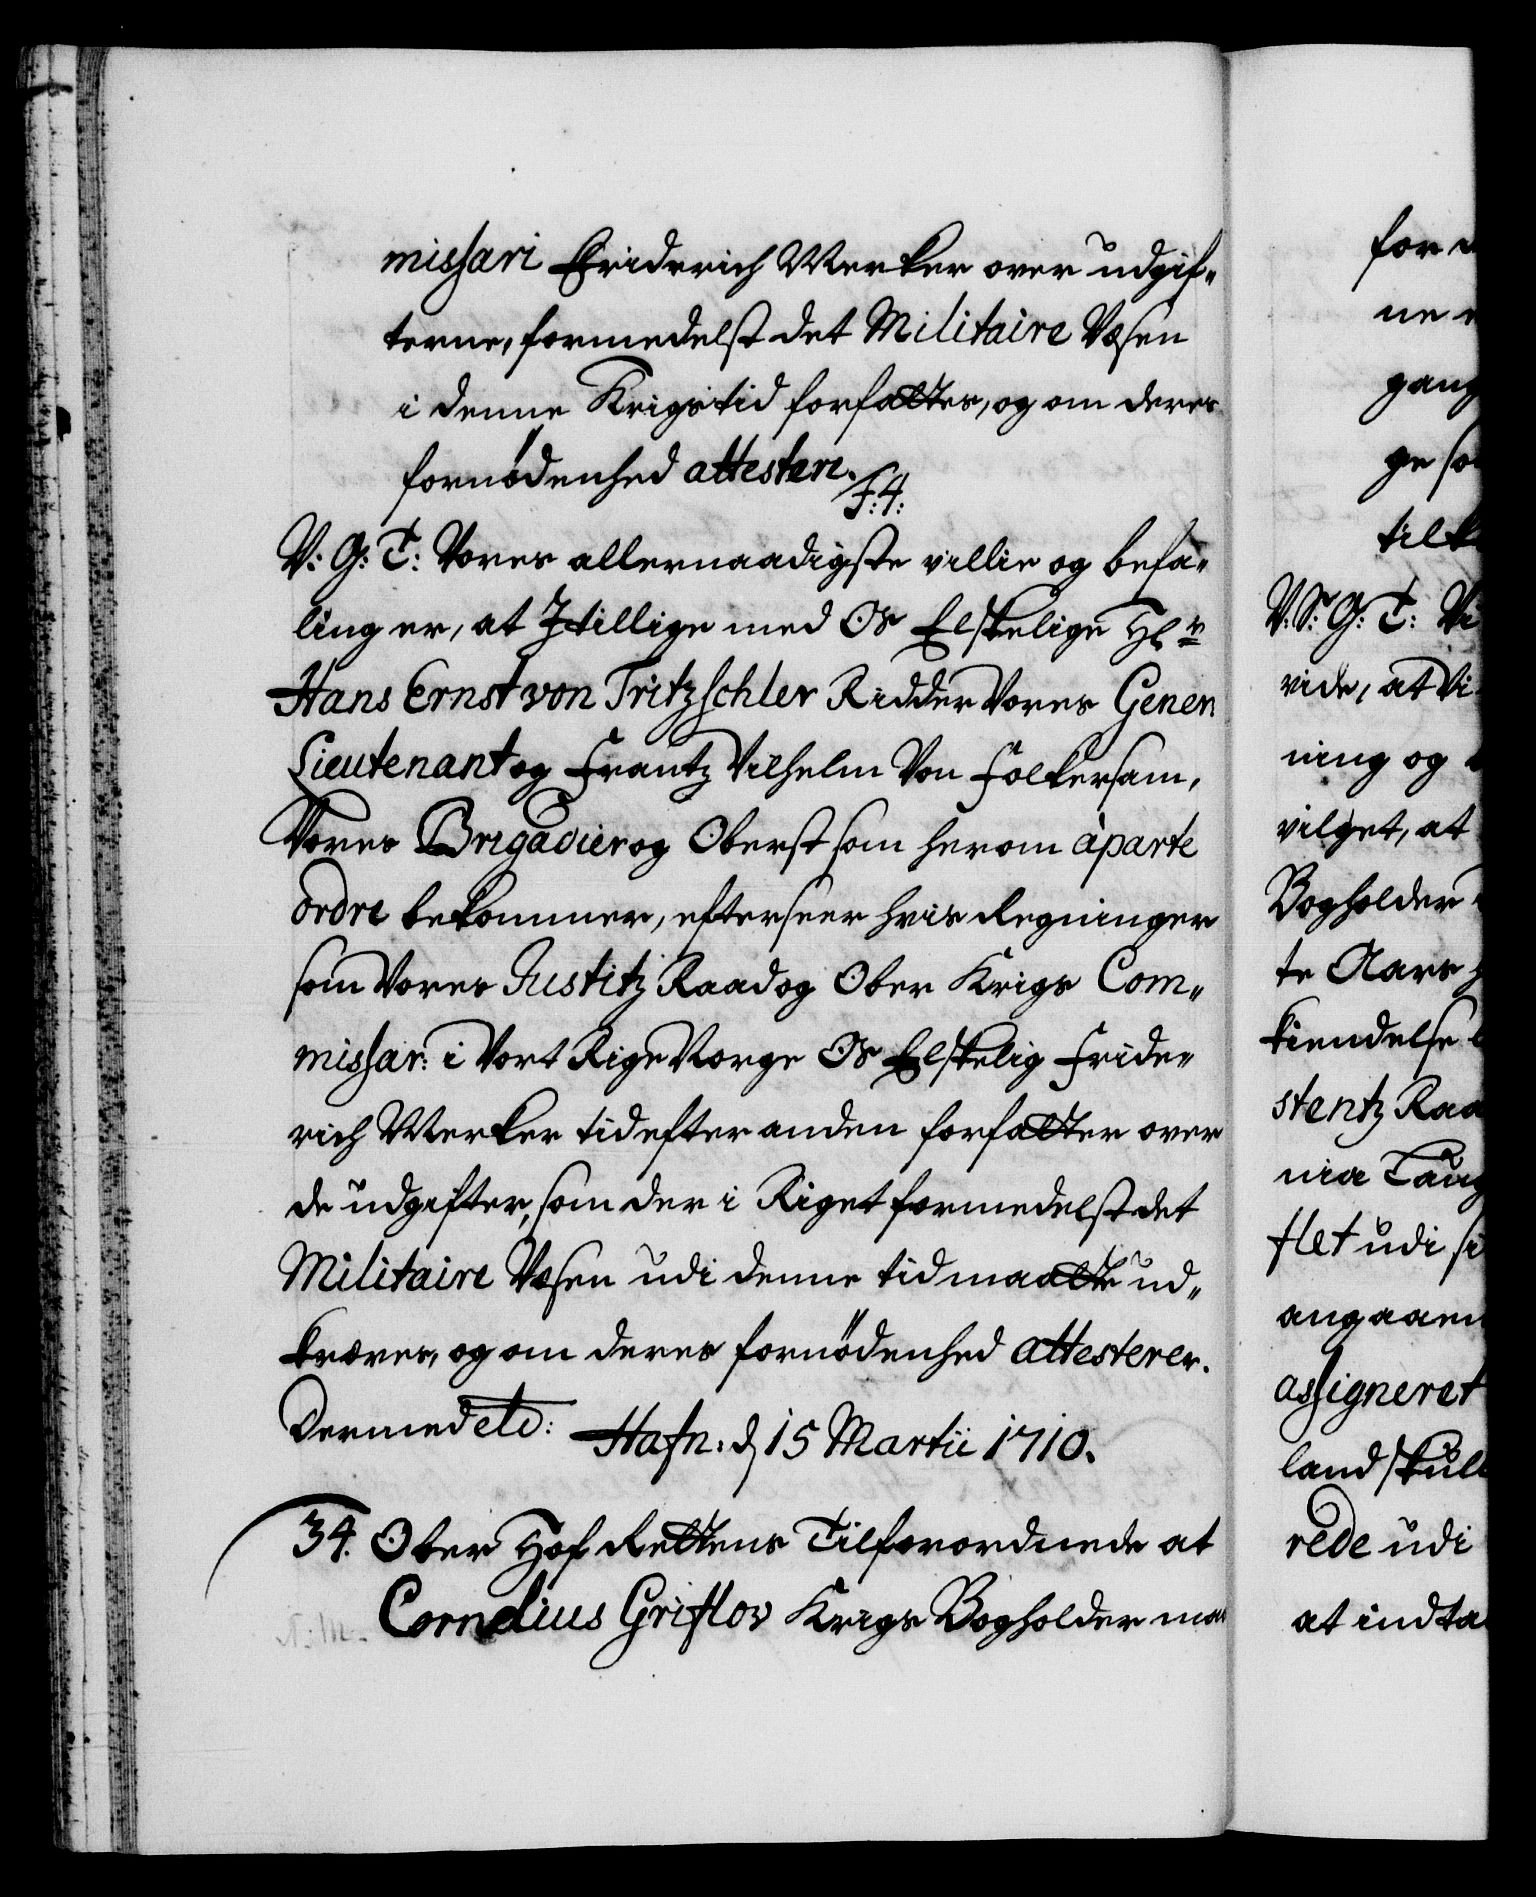 missari Friderich Werker over udgif„
terne, formedelst det Militaire Væsen
i denne Krigstid forfattes, og om deres
fornødenhed attestere.
F:4:
V: G: T: Vores allernaadigste villie og befa„
ling er, at I tillige med Os Elskelige Hr
Hans Ernst von Tritzschler Ridder Vores Gener
Lieutenant og Frantz Vilhelm Von Folkersam,
Vores Brigadier og Oberst som herom aparte
ordre bekommer, efterseer hvis Regninger
som Vores Justitz Raad og Ober Krigs Com„
missar: i Vort Rige Norge Os Elskelig Fride„
rich Werker tid efter anden forfatter over
de udgifter, som der i Riget formedelst det
Militaire Væsen udi denne tid maatte ud„
kræves, og om deres fornødenhed attesterer.
Dermed etc: Hafn: d 15 Martii 1710.
34. Ober Hof Rettens Tilforordnede at
Cornelius Griflow Krigs Bogholder maa
for
ne
gang
ge so
tilk
V: S: G: T: Vi
vide, at Vi
ning og
vilget, at
Bogholder
te Aars
kiendelse
stentz Raa
nia Tang
flet udi si
angaaen
assigneret
land skull
rede udi
at indta